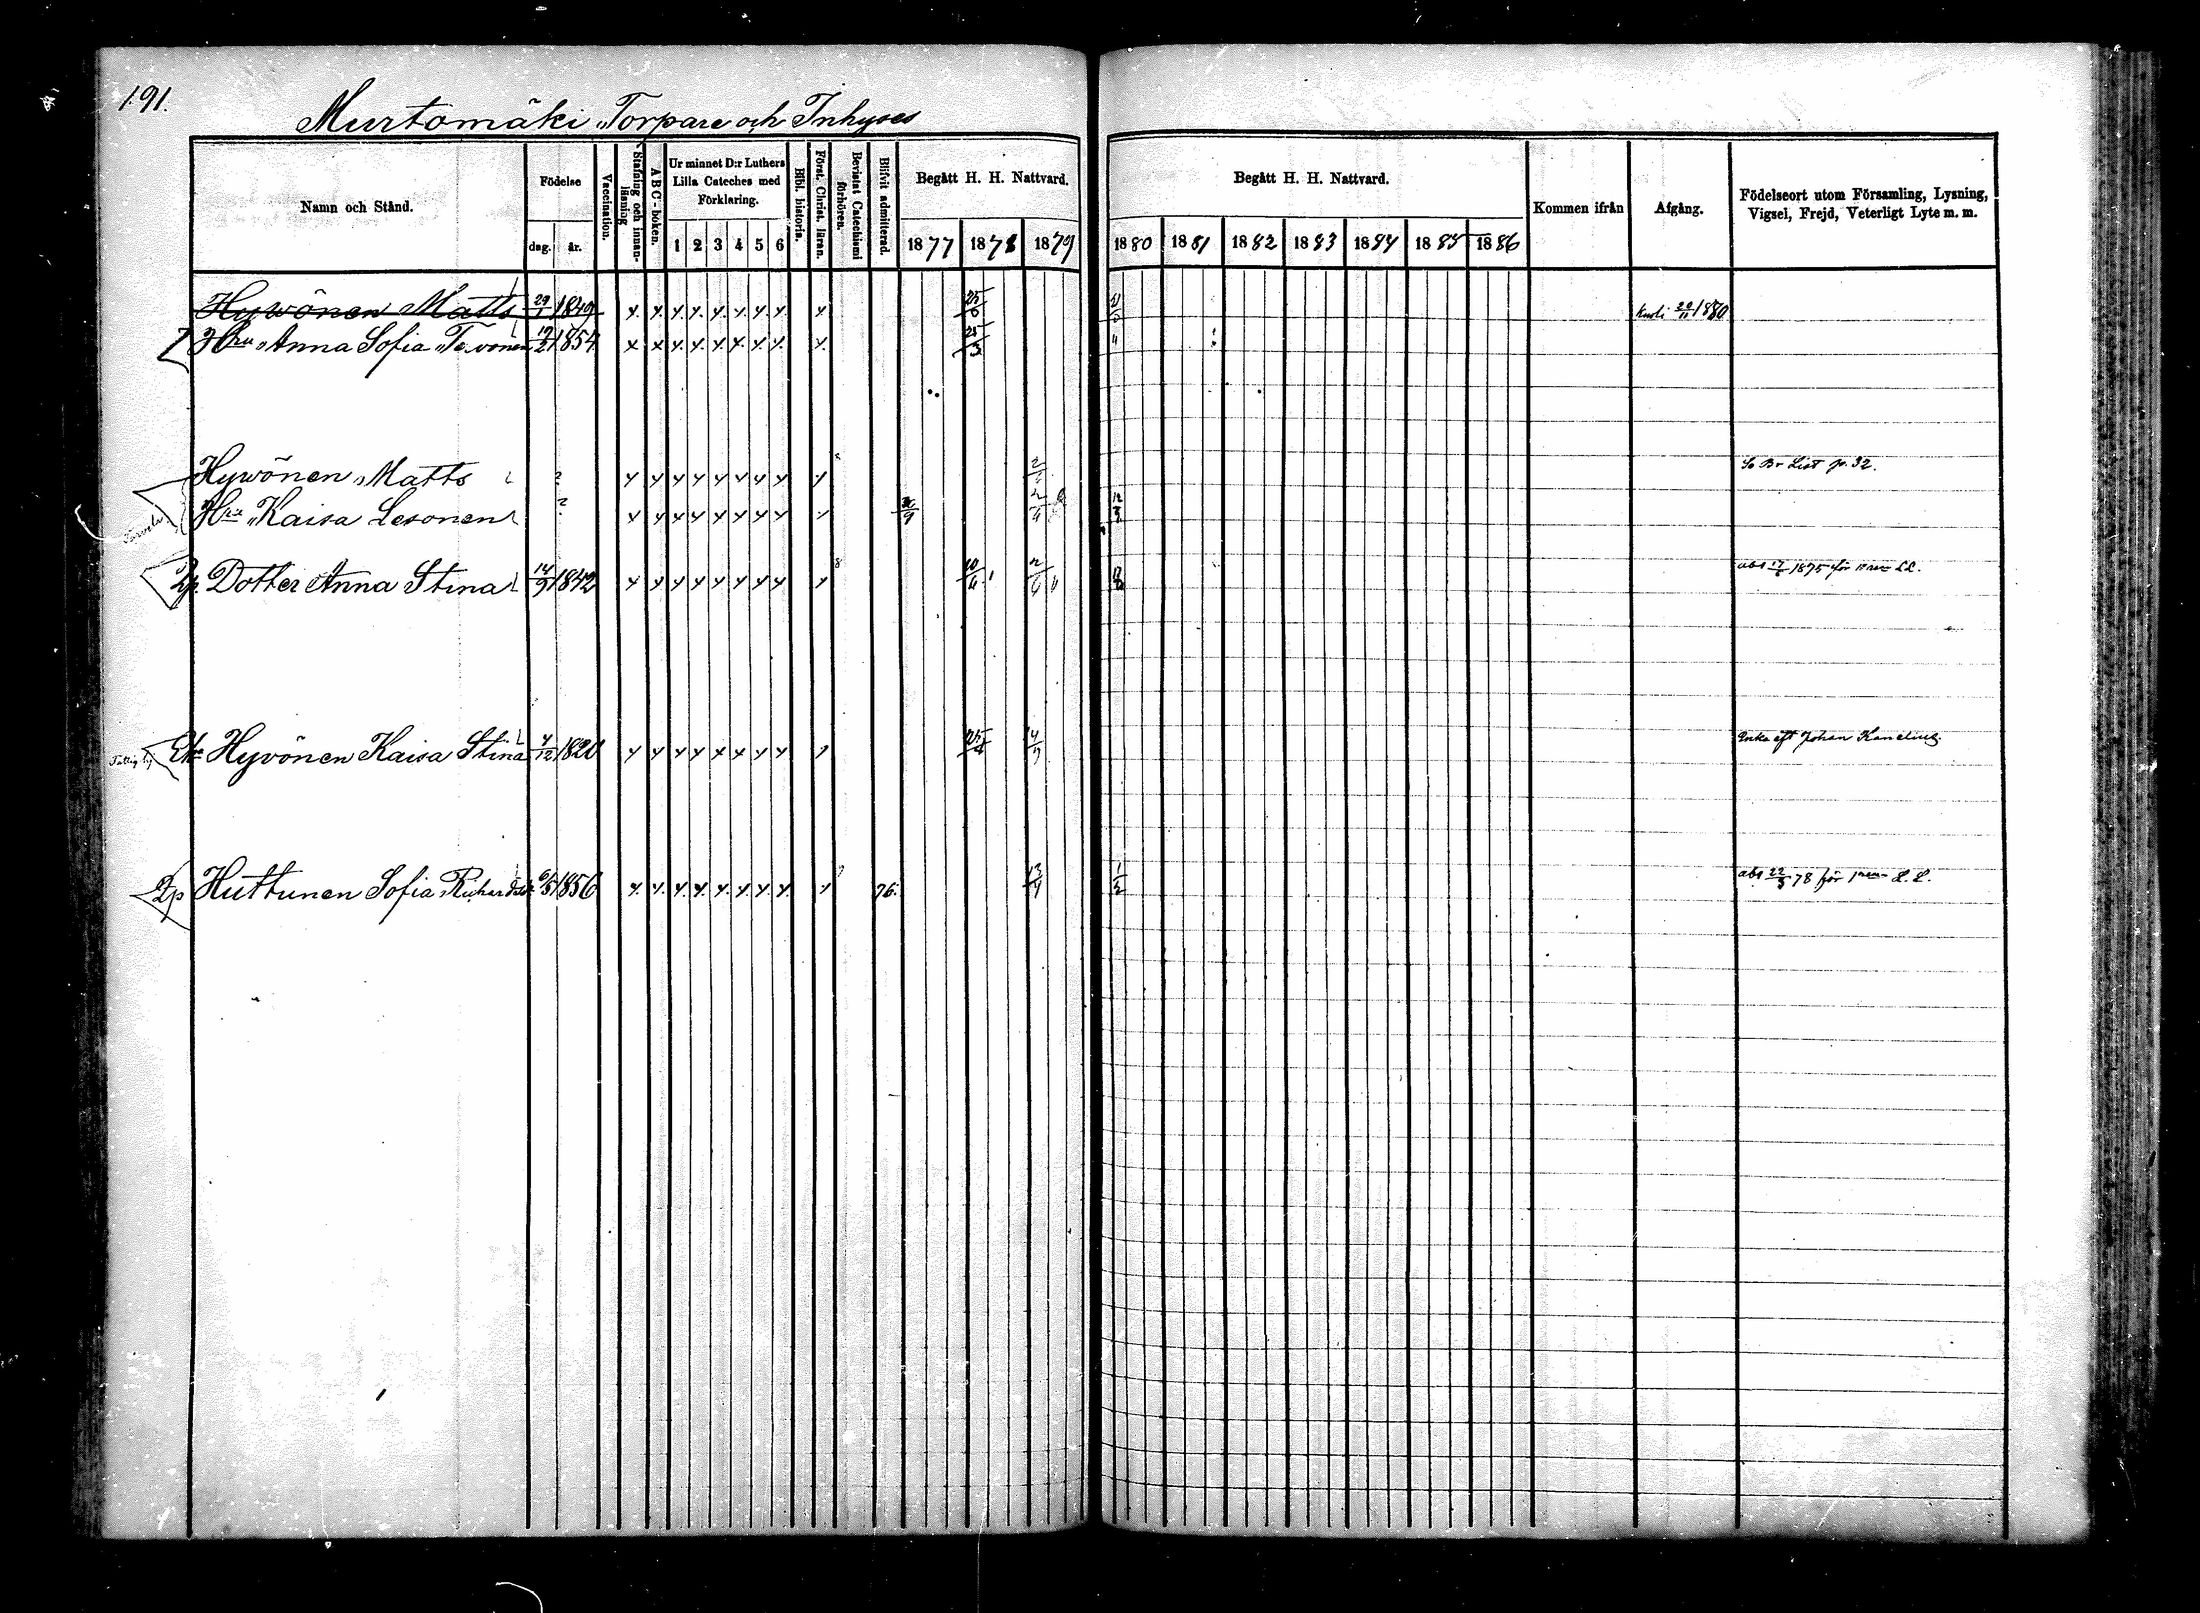 191.
Murtomäki Torpare och Inhyses
Namn och Stånd.
Födelse
dag.
år.
Vaccination.
Stafning och innanläsning
ABC-boken.
Ur minnet D:r Luthers
Lilla Cateches med
Förklaring.
1 2 3 4 5 6
Bibl. historia.
Först. Christ. läran.
Bevistat Catechismi förhören.
Blifvit admitterad.
Begått H. H. Nattvard.
1877 1878 1879
Begått H. H. Nattvard.
1880 1881 1882 1883 1884 1885 1886
Kommen ifrån
Afgång.
Födelseort utom Församling, Lysning,
Vigsel, Frejd, Veterligt Lyte m. m.
Hywönen Matts 29/1 1849 x x x x x x x x x 25/6 kuoli 20/11 1880
Hru Anna Sofia 19/2 1854 x x x x x x x x x 25/3 "
Hywönen Matts ? x x x x x x x x x So Br List p. 32.
Hru Kaisa Lesonen ? x x x x x x x x x
Dotter Anna Stina 14/9 1842 x x x x x x x x x 8 1875 för
Hyvönen Kaisa Stina 4/12 1820 x x x x x x x x x Enka eft Johan
Huttunen Sofia 6/8 1856 x x x x x x x x x 76. abs 22/3 78 för 1 L. L.